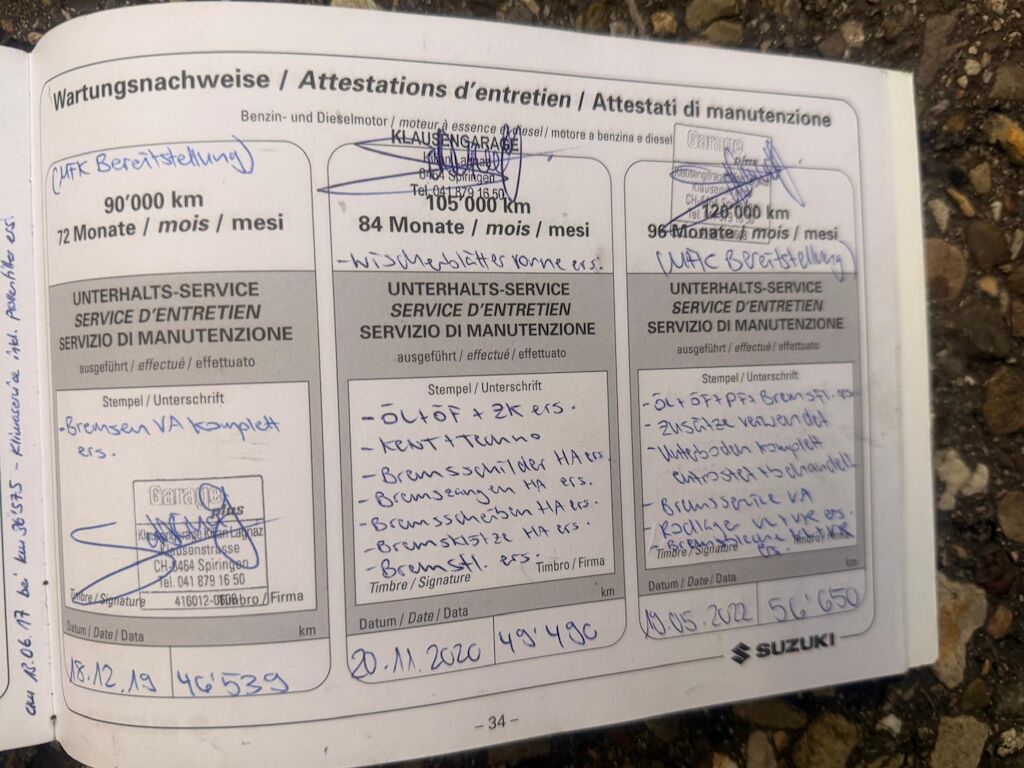 Wartungsnachweise / Attestations d'entretien / Attestati di manutenzione
Benzin- und Dieselmotor / moteur à essence et diesel / motore a benzina e diesel
(MFK Bereitstellung)
90'000 km
72 Monate / mois / mesi
UNTERHALTS-SERVICE
SERVICE D'ENTRETIEN
SERVIZIO DI MANUTENZIONE
ausgeführt / effectué / effettuato
Stempel / Unterschrift
- Bremsen VA komplett
ers.
Garage
plus
Klausengarage Kilian Lagnaz
Klausenstrasse
CH-6464 Spiringen
Tel. 041 879 16 50
416012-0608
Timbre / Signature
Timbro / Firma
Datum / Date / Data
km
18.12.19
46'539
KLAUSENGARAGE
Kilian Lagnaz
6464 Spiringen
Tel. 041 879 16 50
105'000 km
84 Monate / mois / mesi
- Wischerblätter vorne ers.
UNTERHALTS-SERVICE
SERVICE D'ENTRETIEN
SERVIZIO DI MANUTENZIONE
ausgeführt / effectué / effettuato
Stempel / Unterschrift
- ÖL + ÖF + ZK ers.
- KENT + Techno
- Bremsschilder HA ers
- Bremszangen HA ers.
- Bremsscheiben HA ers.
- Bremsklötze HA ers.
- Bremsfl. ers.
Timbre / Signature
Timbro / Firma
Datum / Date / Data
km
20.11.2020
49'490
Garage
plus
Klausengarage
CH-
Tel.
120'000 km
96 Monate / mois / mesi
(MFK Bereitstellung)
UNTERHALTS-SERVICE
SERVICE D'ENTRETIEN
SERVIZIO DI MANUTENZIONE
ausgeführt / effectué / effettuato
Stempel / Unterschrift
- ÖL + ÖF + PF + Bremsfl. ers
- Zusätze verwendet
- Unterboden komplett
entrostet + behandelt
- Bremsservice VA
- Radlager VL + VR ers.
- Bremsbleche
ers.
Timbre / Signature
Timbro /
Datum / Date / Data
km
19.05.2022
56'650
SUZUKI
- 34 -
am 18.06.17 bei km 36'575 - Klimaservice inkl. Pollenfilter ers.